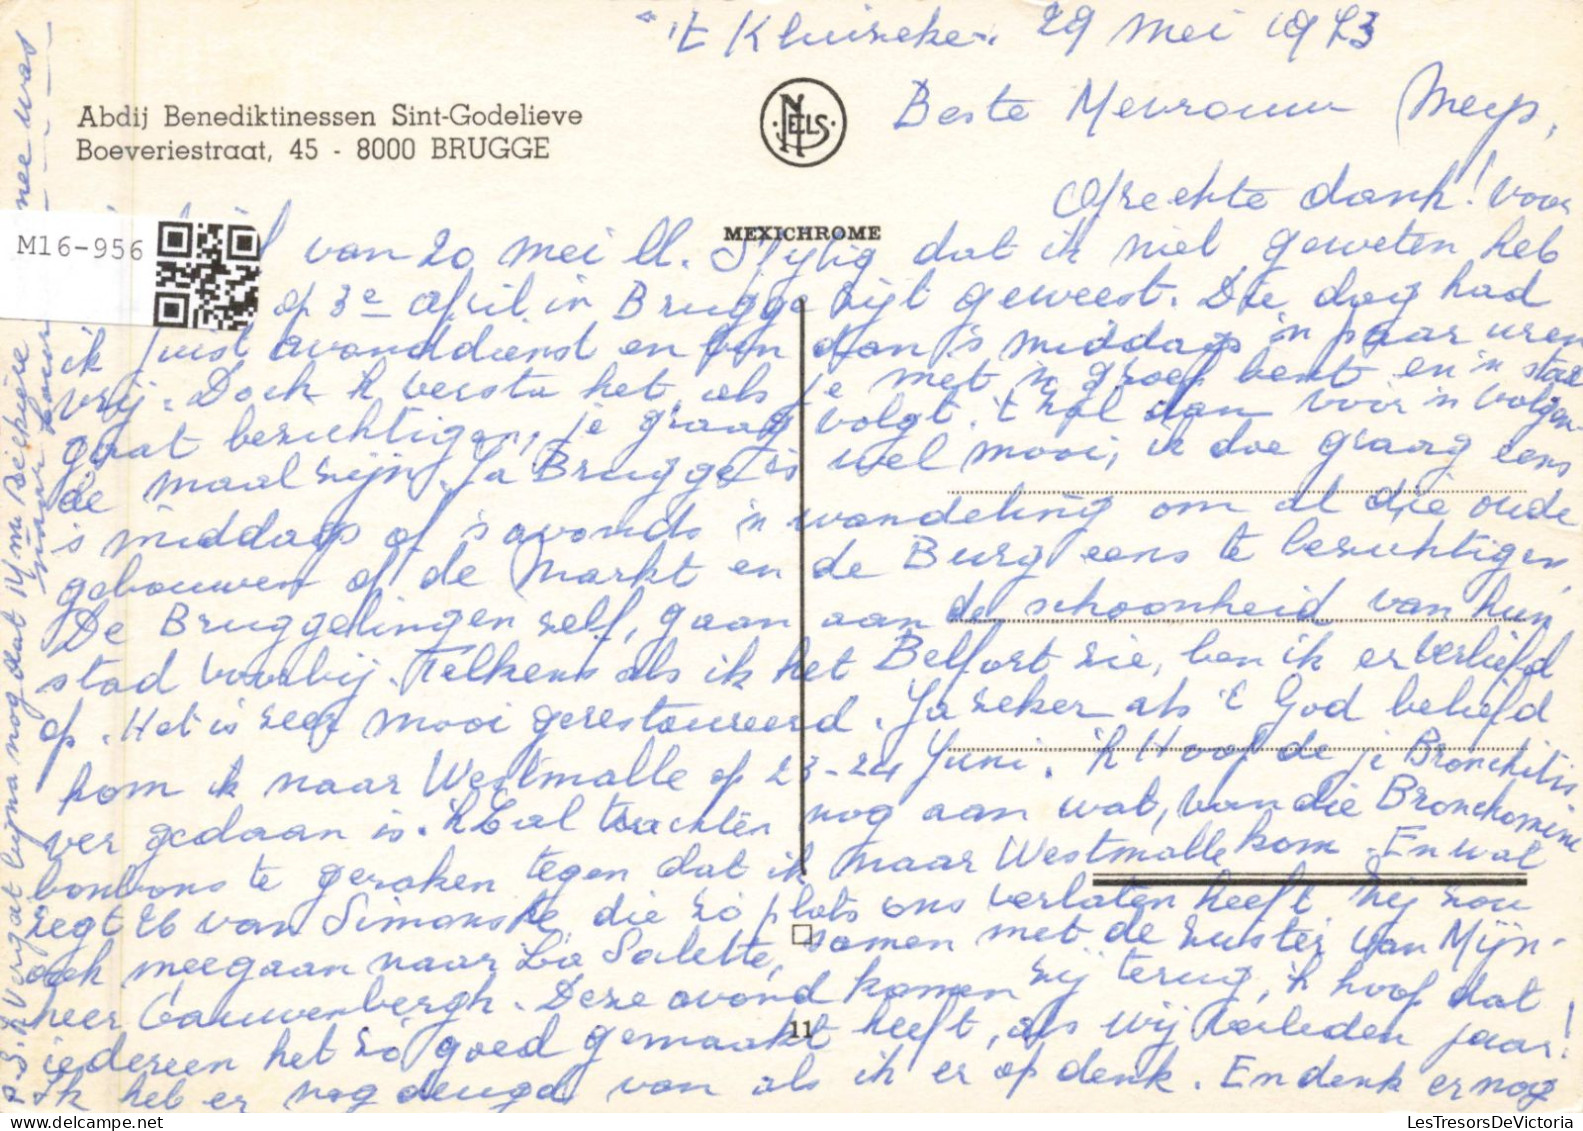 "'t Kluizeke" 29 Mei 1973
Abdij Benediktinessen Sint-Godelieve
Boeveriestraat, 45 - 8000 BRUGGE
NELS
Beste Mevrouw Meys,
Oprechte dank! voor
MEXICHROME
M16-956
van 20 mei ll. Spijtig dat ik niet geweten heb
op 3e april in Brugge zijt geweest. Die dag had
ik juist avonddienst en ben dan 's middags 'n paar uren
vrij. Doch 'k versta het, als je met 'n groep bent en 'n stad
gaat bezichtigen, je graag volgt. 't zal dan voor 'n volgen-
de maal zijn. Ja Brugge is wel mooi, ik doe graag eens
's middags of 's avonds 'n wandeling om al die oude
gebouwen of de Markt en de Burg eens te bezichtigen,
De Bruggelingen zelf, gaan aan de schoonheid van hun
stad voorbij. Telkens als ik het Belfort zie, ben ik er verliefd
op. Het is zeer mooi gerestoureerd. Ja zeker als 't God beliefd
kom ik naar Westmalle op 23-24 Juni. 'k Hoop de je Bronchitis
ver gedaan is. 'k Zal trachten nog aan wat, van die Bronchomine
bonbons te geraken tegen dat ik naar Westmalle kom. En wat
zegt U van Simonske die zo plots ons verlaten heeft. Zij zou
ook meegaan naar La Salette, samen met de zuster van Mijn-
heer Cauwenbergh. Deze avond komen zij terug, 'k hoop dat
iedereen het zo goed gemaakt heeft, als wij verleden jaar!
11
Ik heb er nog deugd van als ik er op denk. En denk er nog
P.S. 'k Vergat bijna nog dat
mee was
LesTresorsDeVictoria.com